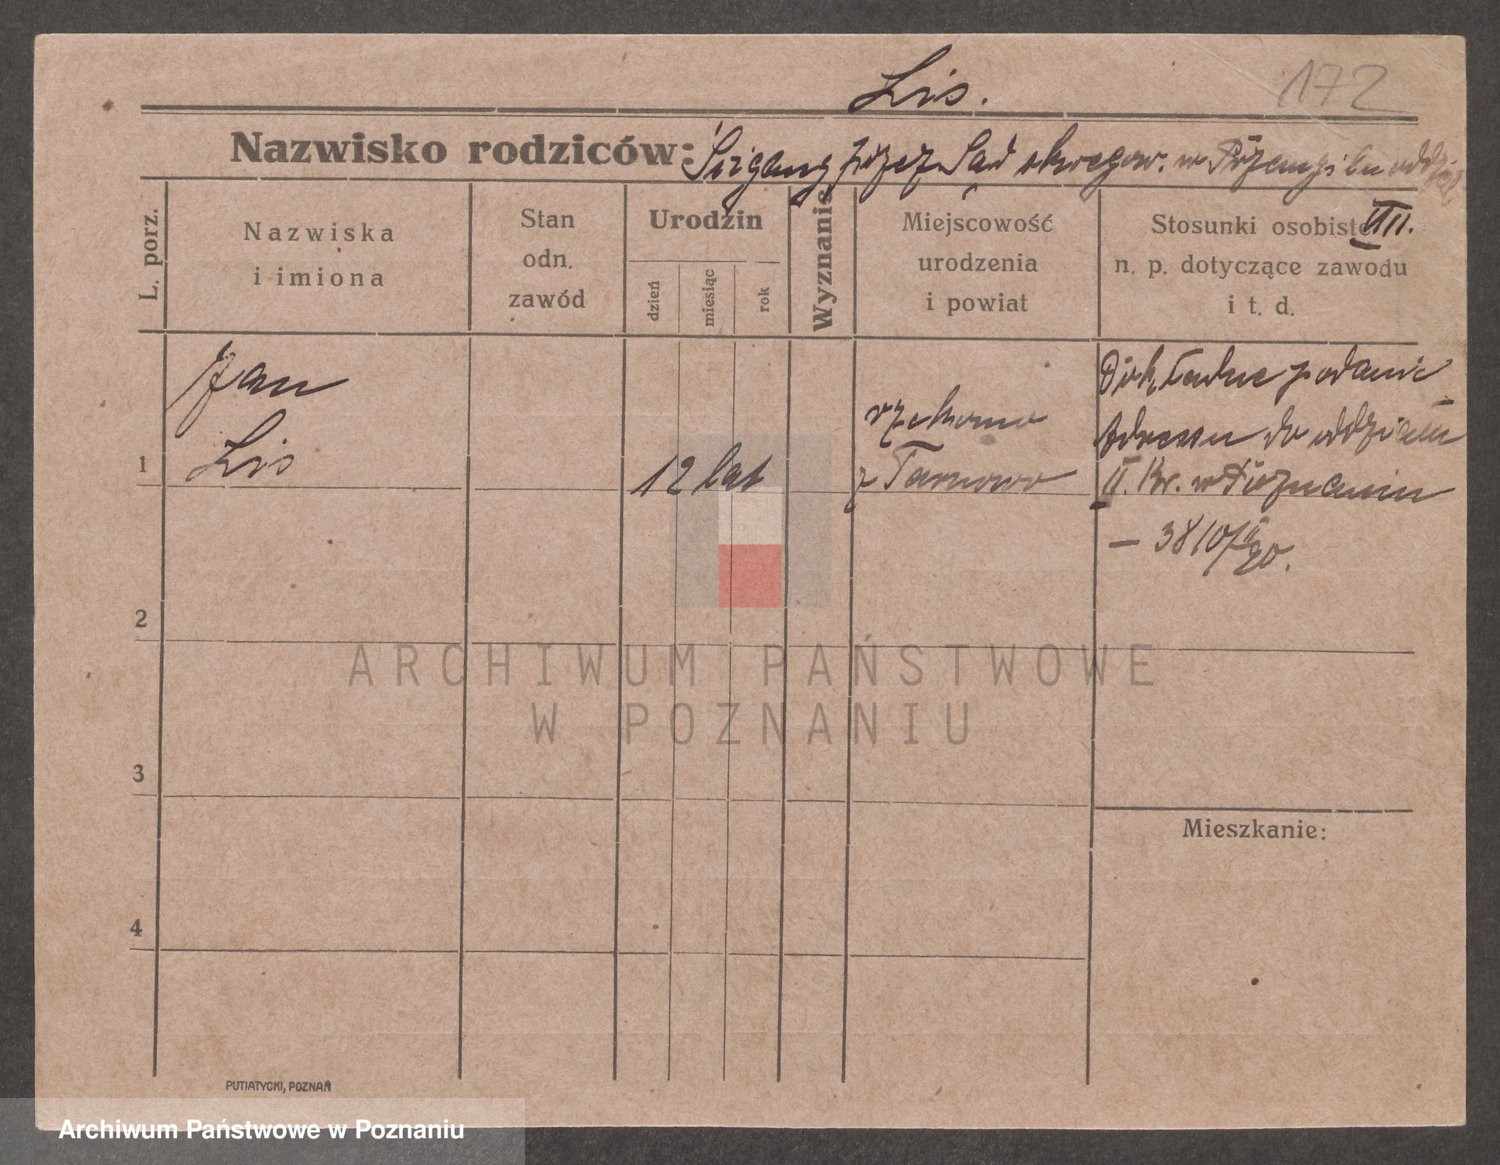 Lis.
172
Nazwisko rodziców: Sąd okręgow. w Przemyślu oddział
VII.
L. porz.
Nazwiska
i imiona
Stan
odn.
zawód
Urodzin
dzień
miesiąc
rok
Wyznanie
Miejscowość
urodzenia
i powiat
Stosunki osobiste
n. p. dotyczące zawodu
i t. d.
1
Jan
Lis
12 lat
rzekomo
z Tarnowa
Dokładne podanie
Adresu do oddziału
II. Kr. w Poznaniu
— 3810/
20.
2
3
4
Mieszkanie:
ARCHIWUM PAŃSTWOWE
W POZNANIU
PUTIATYCKI, POZNAŃ
Archiwum Państwowe w Poznaniu